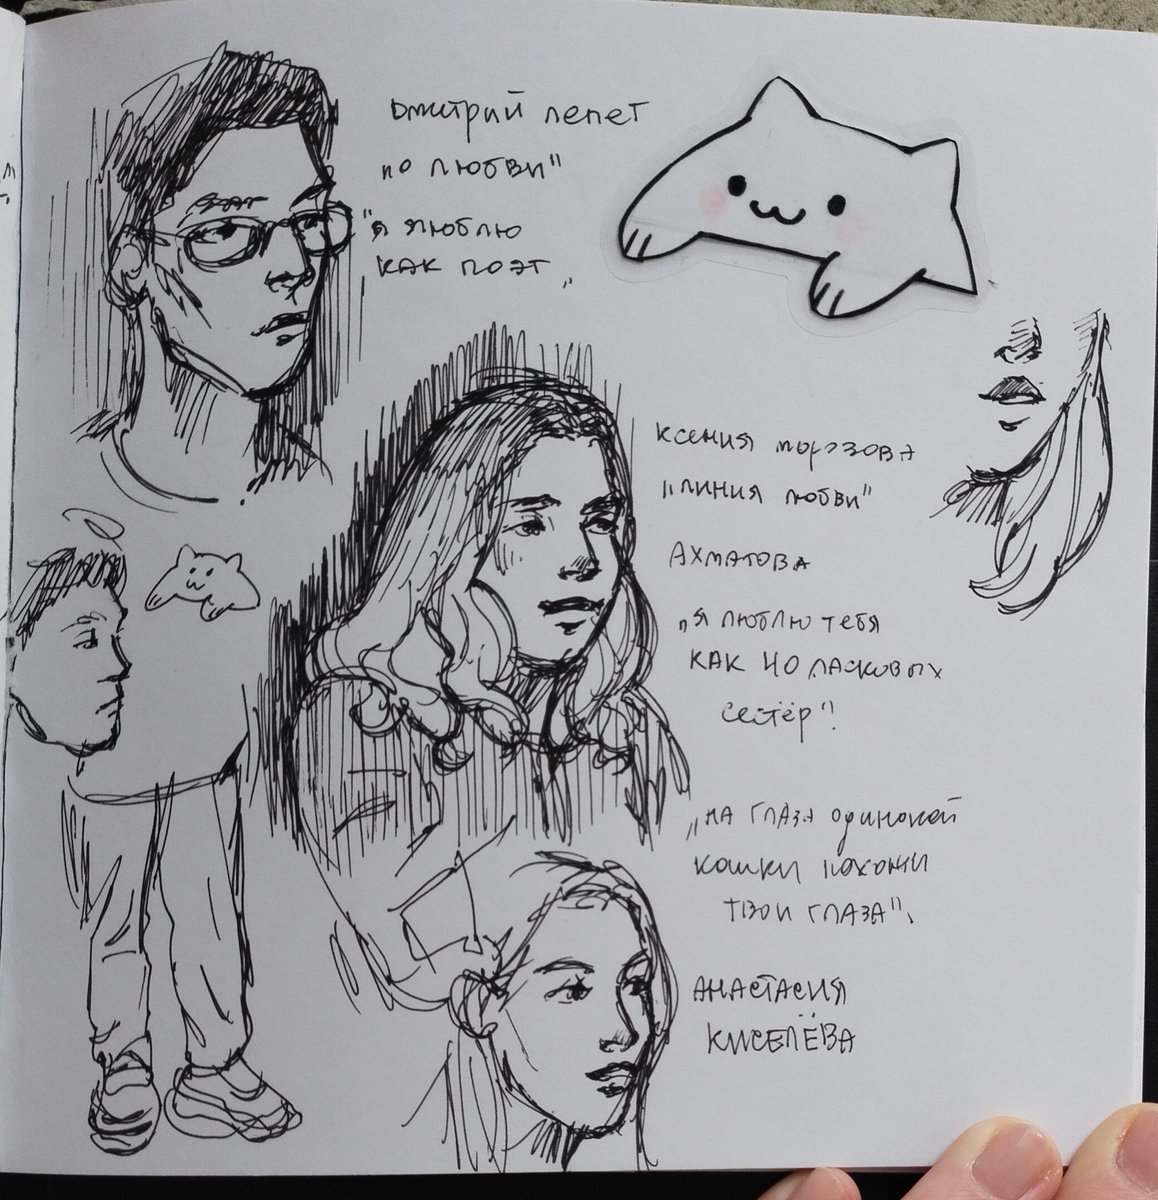 Дмитрий Лепет
„О любви"
"я люблю
как поэт„
Ксения Морозова
„Линия любви"
Ахматова
„я люблю тебя
как 40 ласковых
сестёр".
„на глаза одинокой
кошки похожи
твои глаза".
Анастасия
Киселёва